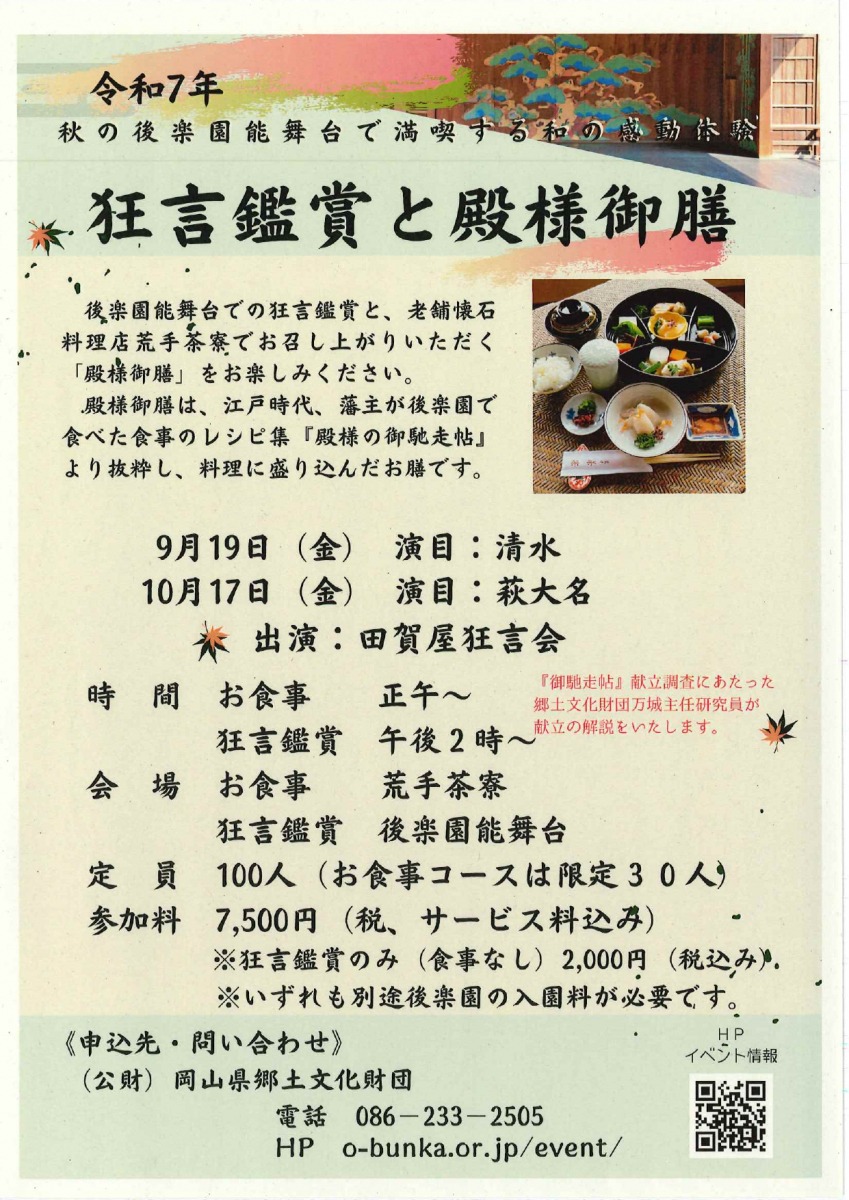 令和7年
秋の後楽園能舞台で満喫する和の感動体験
狂言鑑賞と殿様御膳
後楽園能舞台での狂言鑑賞と、老舗懐石
料理店荒手茶寮でお召し上がりいただく
「殿様御膳」をお楽しみください。
殿様御膳は、江戸時代、藩主が後楽園で
食べた食事のレシピ集『殿様の御馳走帖』
より抜粋し、料理に盛り込んだお膳です。
9月19日（金）　演目：清水
10月17日（金）　演目：萩大名
出演：田賀屋狂言会
『御馳走帖』献立調査にあたった
郷土文化財団万城主任研究員が
献立の解説をいたします。
時　間　お食事　　正午～
狂言鑑賞　午後２時～
会　場　お食事　　荒手茶寮
狂言鑑賞　後楽園能舞台
定　員　100人（お食事コースは限定３０人）
参加料　7,500円（税、サービス料込み）
※狂言鑑賞のみ（食事なし）2,000円（税込み）.
※いずれも別途後楽園の入園料が必要です。
《申込先・問い合わせ》
（公財）岡山県郷土文化財団
電話　086－233－2505
HP　o-bunka.or.jp/event/
HP
イベント情報